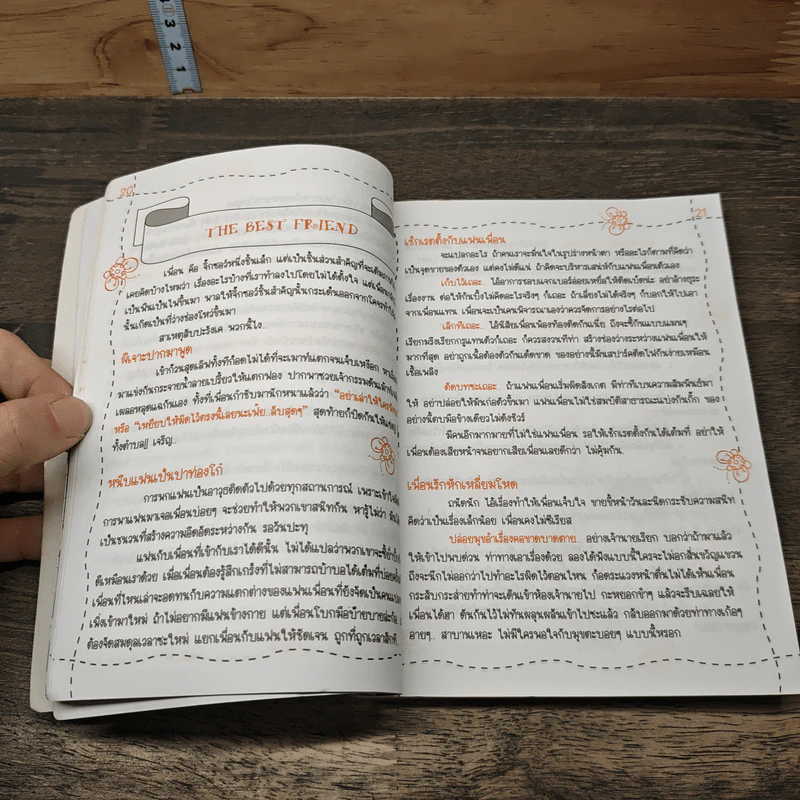 3
2
1
20
THE BEST FRIEND
เพื่อน คือ จิ๊กซอว์หนึ่งชิ้นเล็ก แต่เป็นชิ้นส่วนสำคัญที่จะเติมภาพ
เคยคิดบ้างไหมว่า เรื่องอะไรบ้างที่เราทำลงไปโดยไม่ได้ตั้งใจ แต่เพื่อน
เป็นฟืนเป็นไฟขึ้นมา พาลให้จิ๊กซอว์ชิ้นสำคัญนั้นกระเด็นออกจาก
นั้นเกิดเป็นที่ว่างช่องโหว่ขึ้นมา
สาเหตุสับปะรังเค พวกนี้ไง...
ผีเจาะปากมาพูด
เข้าก้วนสุดเลิฟทั้งทีก็อดไม่ได้ที่จะเมาท์แตกจนเจ็บเหงือก
มาแข่งกันกระจายน้ำลายเปรี้ยวให้แตกฟอง ปากพาซวยเจ้ากรรมดัน
เผลอหลุดแฉกันเอง ทั้งที่เพื่อนกำชับมานักหนาแล้วว่า "อย่าเล่าให้ใคร
หรือ "เหยียบให้มิดไว้ตรงนี้เลยนะเพ้ย..ลับสุดๆ" สุดท้ายก็ปิดกันให้แซ่ด
ทั้งตำบล!! เจริญ..
หนีบแฟนเป็นปาท่องโก๋
การพกแฟนเป็นอาวุธติดตัวไปด้วยทุกสถานการณ์ เพราะเข้าใจ
การพาแฟนมาเจอเพื่อนบ่อยๆ จะช่วยทำให้พวกเขาสนิทกัน หารู้ไม่ว่า
เป็นชนวนที่สร้างความอึดอัดระหว่างกัน รอวันปะทุ
แฟนกับเพื่อนที่เข้ากับเราได้ดีนั้น ไม่ได้แปลว่าพวกเขาจะซี้ย่ำปึ้ก
ดีเหมือนเราด้วย เมื่อเพื่อนต้องรู้สึกเกร็งที่ไม่สามารถบ้าบอได้เต็มที่บ่อย
เพื่อนที่ไหนเล่าจะอดทนกับความแตกต่างของแฟนเพื่อนที่ยังจัดเป็นคน
เพิ่งเข้ามาใหม่ ถ้าไม่อยากมีแฟนข้างกาย แต่เพื่อนโบกมือบ๊ายบายล่ะก็
ต้องจัดสมดุลเวลาซะใหม่ แยกเพื่อนกับแฟนให้ชัดเจน ถูกที่ถูกเวลาสักที
21
เช็กเรตติ้งกับแฟนเพื่อน
จะแปลกอะไร ถ้าคนเราจะมั่นใจในรูปร่างหน้าตา หรืออะไรก็ตามที่คิดว่า
เป็นจุดขายของตัวเอง แต่คงไม่ดีแน่ ถ้าคิดจะบริหารเสน่ห์กับแฟนเพื่อนตัวเอง
เก็บไว้เถอะ.. ไอ้อาการชอบแจกเบอร์อ่อยเหยื่อให้ติดเบ็ดน่ะ อย่าล้างธุระ
เรื่องงาน ต่อให้กับปิ๊งไม่คิดอะไรจริงๆ ก็เถอะ ถ้าเลี่ยงไม่ได้จริงๆ ก็บอกให้ไปเอา
จากเพื่อนแทน เพื่อนจะเป็นคนพิจารณาเองว่าควรจัดการอย่างไรต่อไป
เลิกทีเถอะ.. ไอ้นิสัยเพื่อนพ้องท้องติดกันเนี่ย ถึงจะซี้กันแบบแพนๆ
เรียกพรึงเรียกกรูแทนตัวก็เถอะ ก็ควรสงวนทีท่า สร้างช่องว่างระหว่างแฟนเพื่อนให้
มากที่สุด อย่าถูกเนื้อต้องตัวกันเด็ดขาด ของอย่างนี้มันสปาร์คติดไฟกันง่ายเหมือน
เชื้อเพลิง
ตัดบทซะเถอะ.. ถ้าแฟนเพื่อนเริ่มผิดสังเกต มีท่าทีเบนความสัมพันธ์มา
ให้ อย่าปล่อยให้มันก่อตัวขึ้นมา แฟนเพื่อนไม่ใช่สมบัติสาธารณะแบ่งกันกิ๊ก ของ
อย่างนี้ตบมือข้างเดียวไม่ดังชัวร์
มีคนอีกมากมายที่ไม่ใช่แฟนเพื่อน รอให้เช็กเรตติ้งกันได้เต็มที่ อย่าให้
เพื่อนต้องเสียหน้าจนอยากเสียเพื่อนเลยดีกว่า ไม่คุ้มกัน..
เพื่อนรักหักเหลี่ยมโหด
ถนัดนัก ไอ้เรื่องทำให้เพื่อนเจ็บใจ ขายขี้หน้าวันละนิดกระชับความสนิท
คิดว่าเป็นเรื่องเล็กน้อย เพื่อนคงไม่ซีเรียส
ปล่อยมุขอำเรื่องคอขาดบาดตาย.. อย่างเจ้านายเรียก บอกว่าถ้ามาแล้ว
ให้เข้าไปพบด่วน ทำทางเอาเรื่องด้วย ลองได้ฟังแบบนี้ใครจะไม่อกสั่นขวัญแขวน
ถึงจะนึกไม่ออกว่าไปทำอะไรผิดไว้ตอนไหน ก็อดระแวงหน้าตื่นไม่ได้เห็นเพื่อน
กระสับกระส่ายทำท่าจะเดินเข้าห้องเจ้านายไป กะหยอกขำๆ แล้วจะรีบเฉลยให้
เพื่อนได้ฮา ดันกันไว้ไม่ทันผลุนผลันเข้าไปซะแล้ว กลับออกมาด้วยท่าทางเก้อๆ
อายๆ.. สาบานเหอะ ไม่มีใครพอใจกับมุขตะบอยๆ แบบนี้หรอก